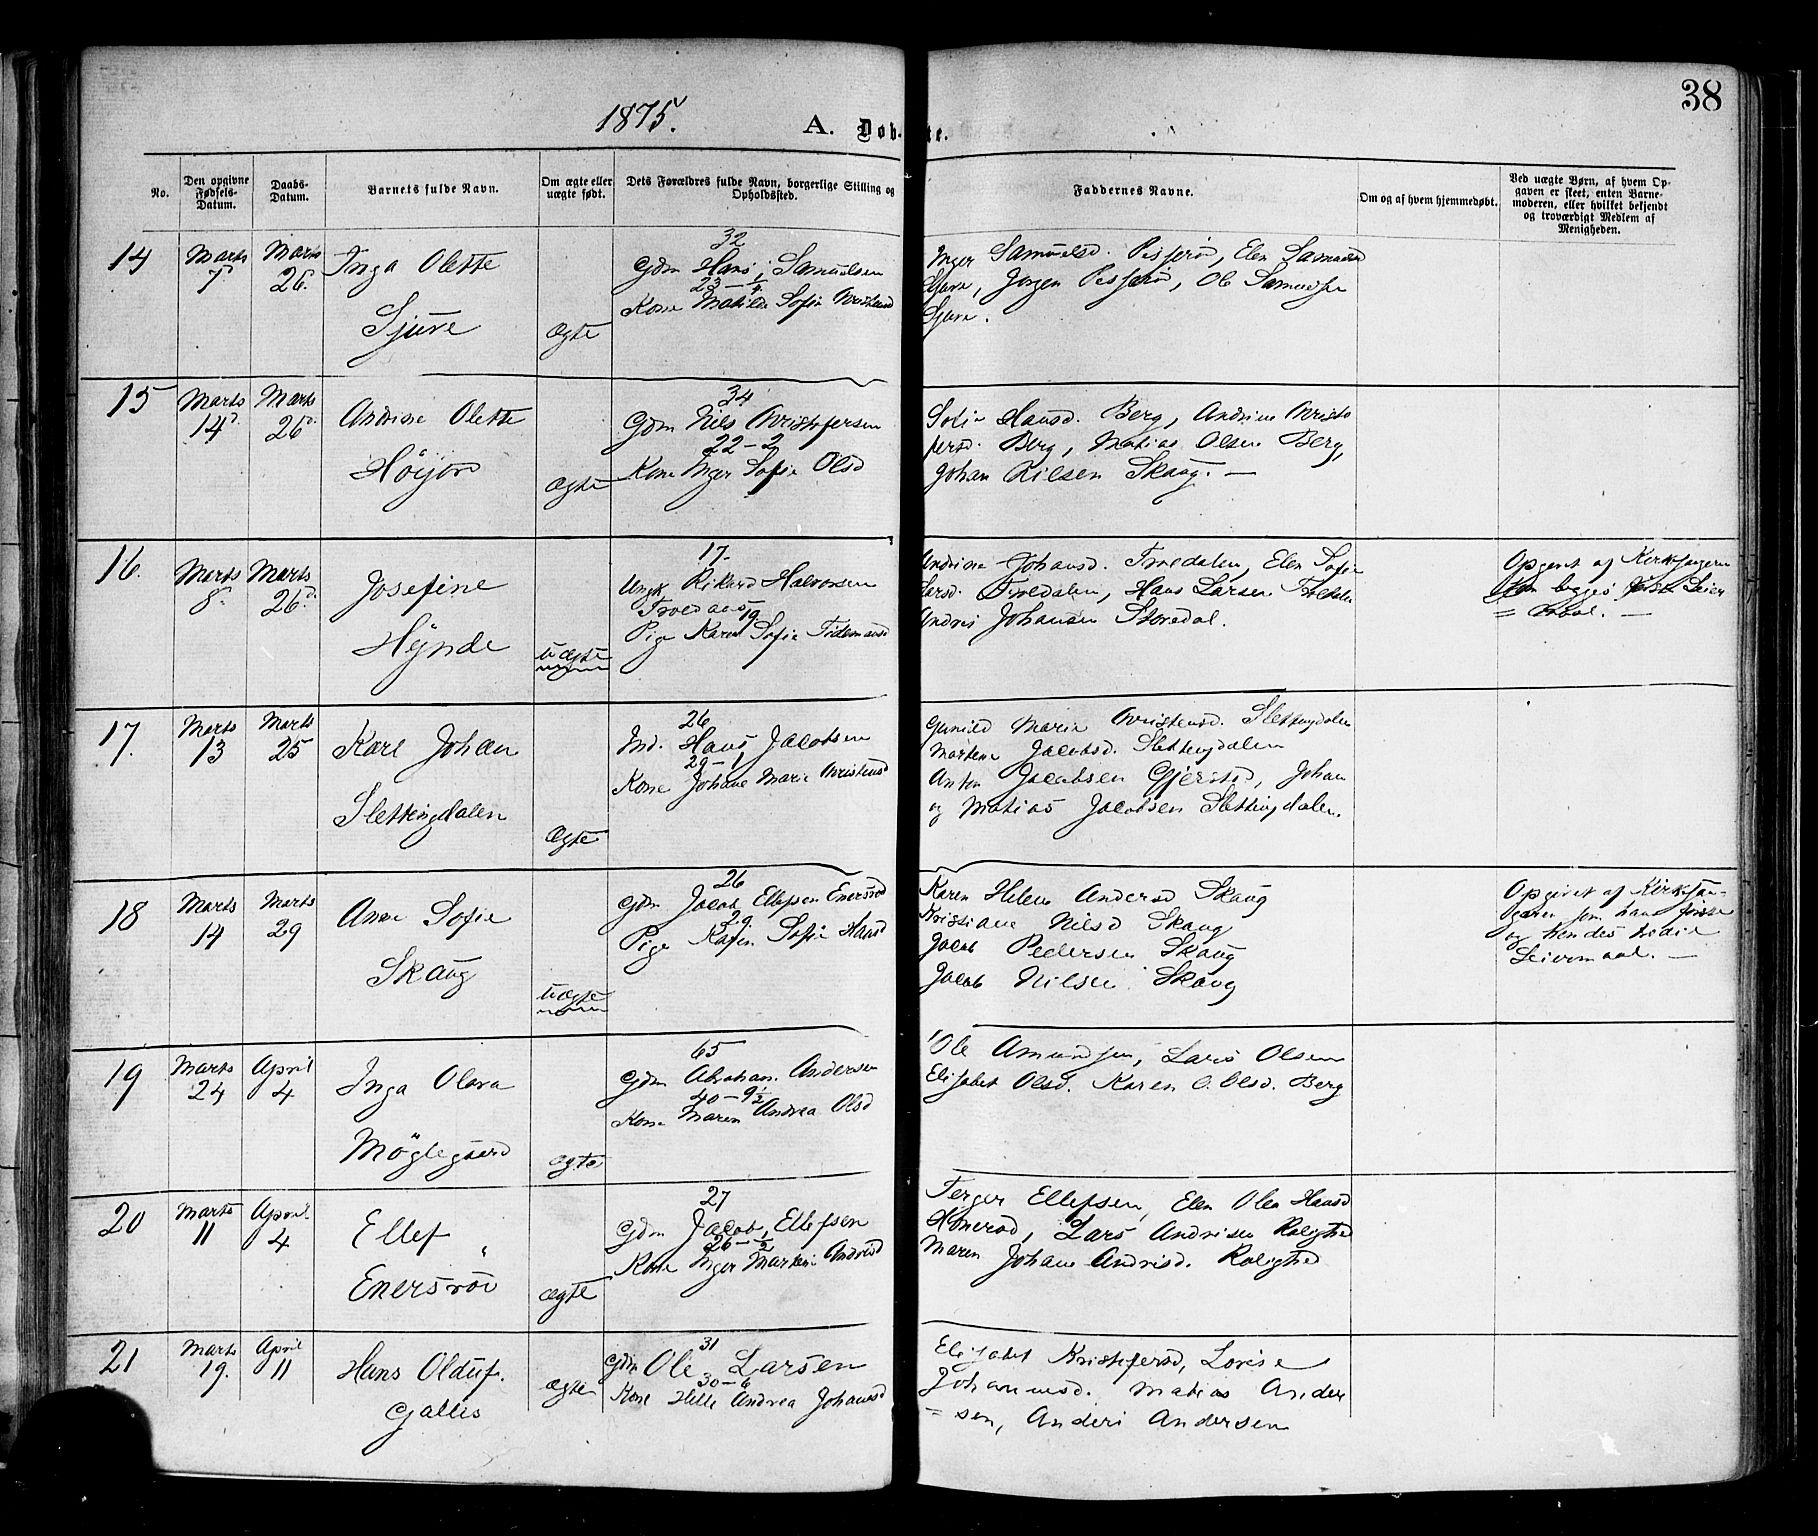 38
1875.
A. Døb-te.
No.
Den opgivne Fødsels-Datum.
Daabs-Datum.
Barnets fulde Navn.
Om ægte eller uægte født.
Dets Forældres fulde Navn, borgerlige Stilling og Opholdssted.
Faddernes Navne.
Om og af hvem hjemmedøbt.
Ved uægte Børn, af hvem Op-
gaven er skeet, enten Barne-
moderen, eller hvilket bekjendt
og troværdigt Medlem af
Menigheden.
14
Marts 7.
Marts 26.
Inga Olette
Sjure
Ægte
32
Gdm Hans Samuelsen
23 – 1/4
Kone Matilde Sofie
Inger Samuelsd. Pisserød, Elen
Sjure, Jørgen Pisserød, Ole
Sjure.
15
Marts 14d.
Marts 26d.
Andrine Olette
Höijord
Ægte
34
Gdm Nils Kristofersen
22 – 2
Kone Inger Sofie Olsd
Sofie Hansd. Berg, Andrine Kristo
fersd. Berg, Matias Olsen Berg,
Johan Nilsen Skaug. –
16.
Marts 8.
Marts 26d.
Josefine
Hynde
Uægte
17.
Ungk Rikard Halvorsen
19
Pige Karen Sofie Tidemansd
Andrine Johansd. Trædalen, Elen Sofie
Larsd. Trædalen, Hans Larsen
Andris Johansen Storedal.
Opgivet af Kirkesangeren
begges første Leier
= maal. –
17.
Marts 13
Marts 25
Karl Johan
Slettingdalen
Ægte
26
Ind. Hans Jacobsen
29 – 1
Kone Johane Marie Kristensd
Gunild Marie Kristensd. Slettingdalen
Martene Jacobsd. Slettingdalen
Anton Jacobsen Gjerstad, Johan
og Matias Jacobsen Slettingdalen.
18
Marts 14
Marts 29
Anne Sofie
Skaug
Uægte
26
Gdm Jacob Ellefsen Enersrød
29
Pige Karen Sofie Hansd
Karen Helene Andersd Skaug
Kristiane Nilsd Skaug
Jacob Pedersen Skaug
Jacob Nilsen Skaug
Opgivet af Kirkesan-
geren som hans første
og hendes tredie
Leiermaal. –
19
Marts 24
April 4
Inga Olava
Möglegaard
ægte
65
Gdm Abraham Andersen
40 – 9 1/2
Kone Maren Andrea Olsd
Ole Amundsen, Lars Olsen
Elisabet Olsd. Karen O. Olsd. Berg
20
Marts 11
April 4
Ellef
Enersröd
ægte
27
Gdm Jacob Ellefsen
26 – 1/2
Kone Inger Martine Andrisd
Terger Ellefsen, Elen Olea Hansd
Lars Andrisen Rolighed
Maren Johane Andrisd. Rolighed
21
Marts 19.
April 11
Hans Olduf.
Gallis
ægte
31
Gdm Ole Larsen
30 – 6
Kone Helle Andrea Johansd
Elisabet Kristofersd, Lovise
Johannesd. Matias Ander
= sen, Anders Andersen